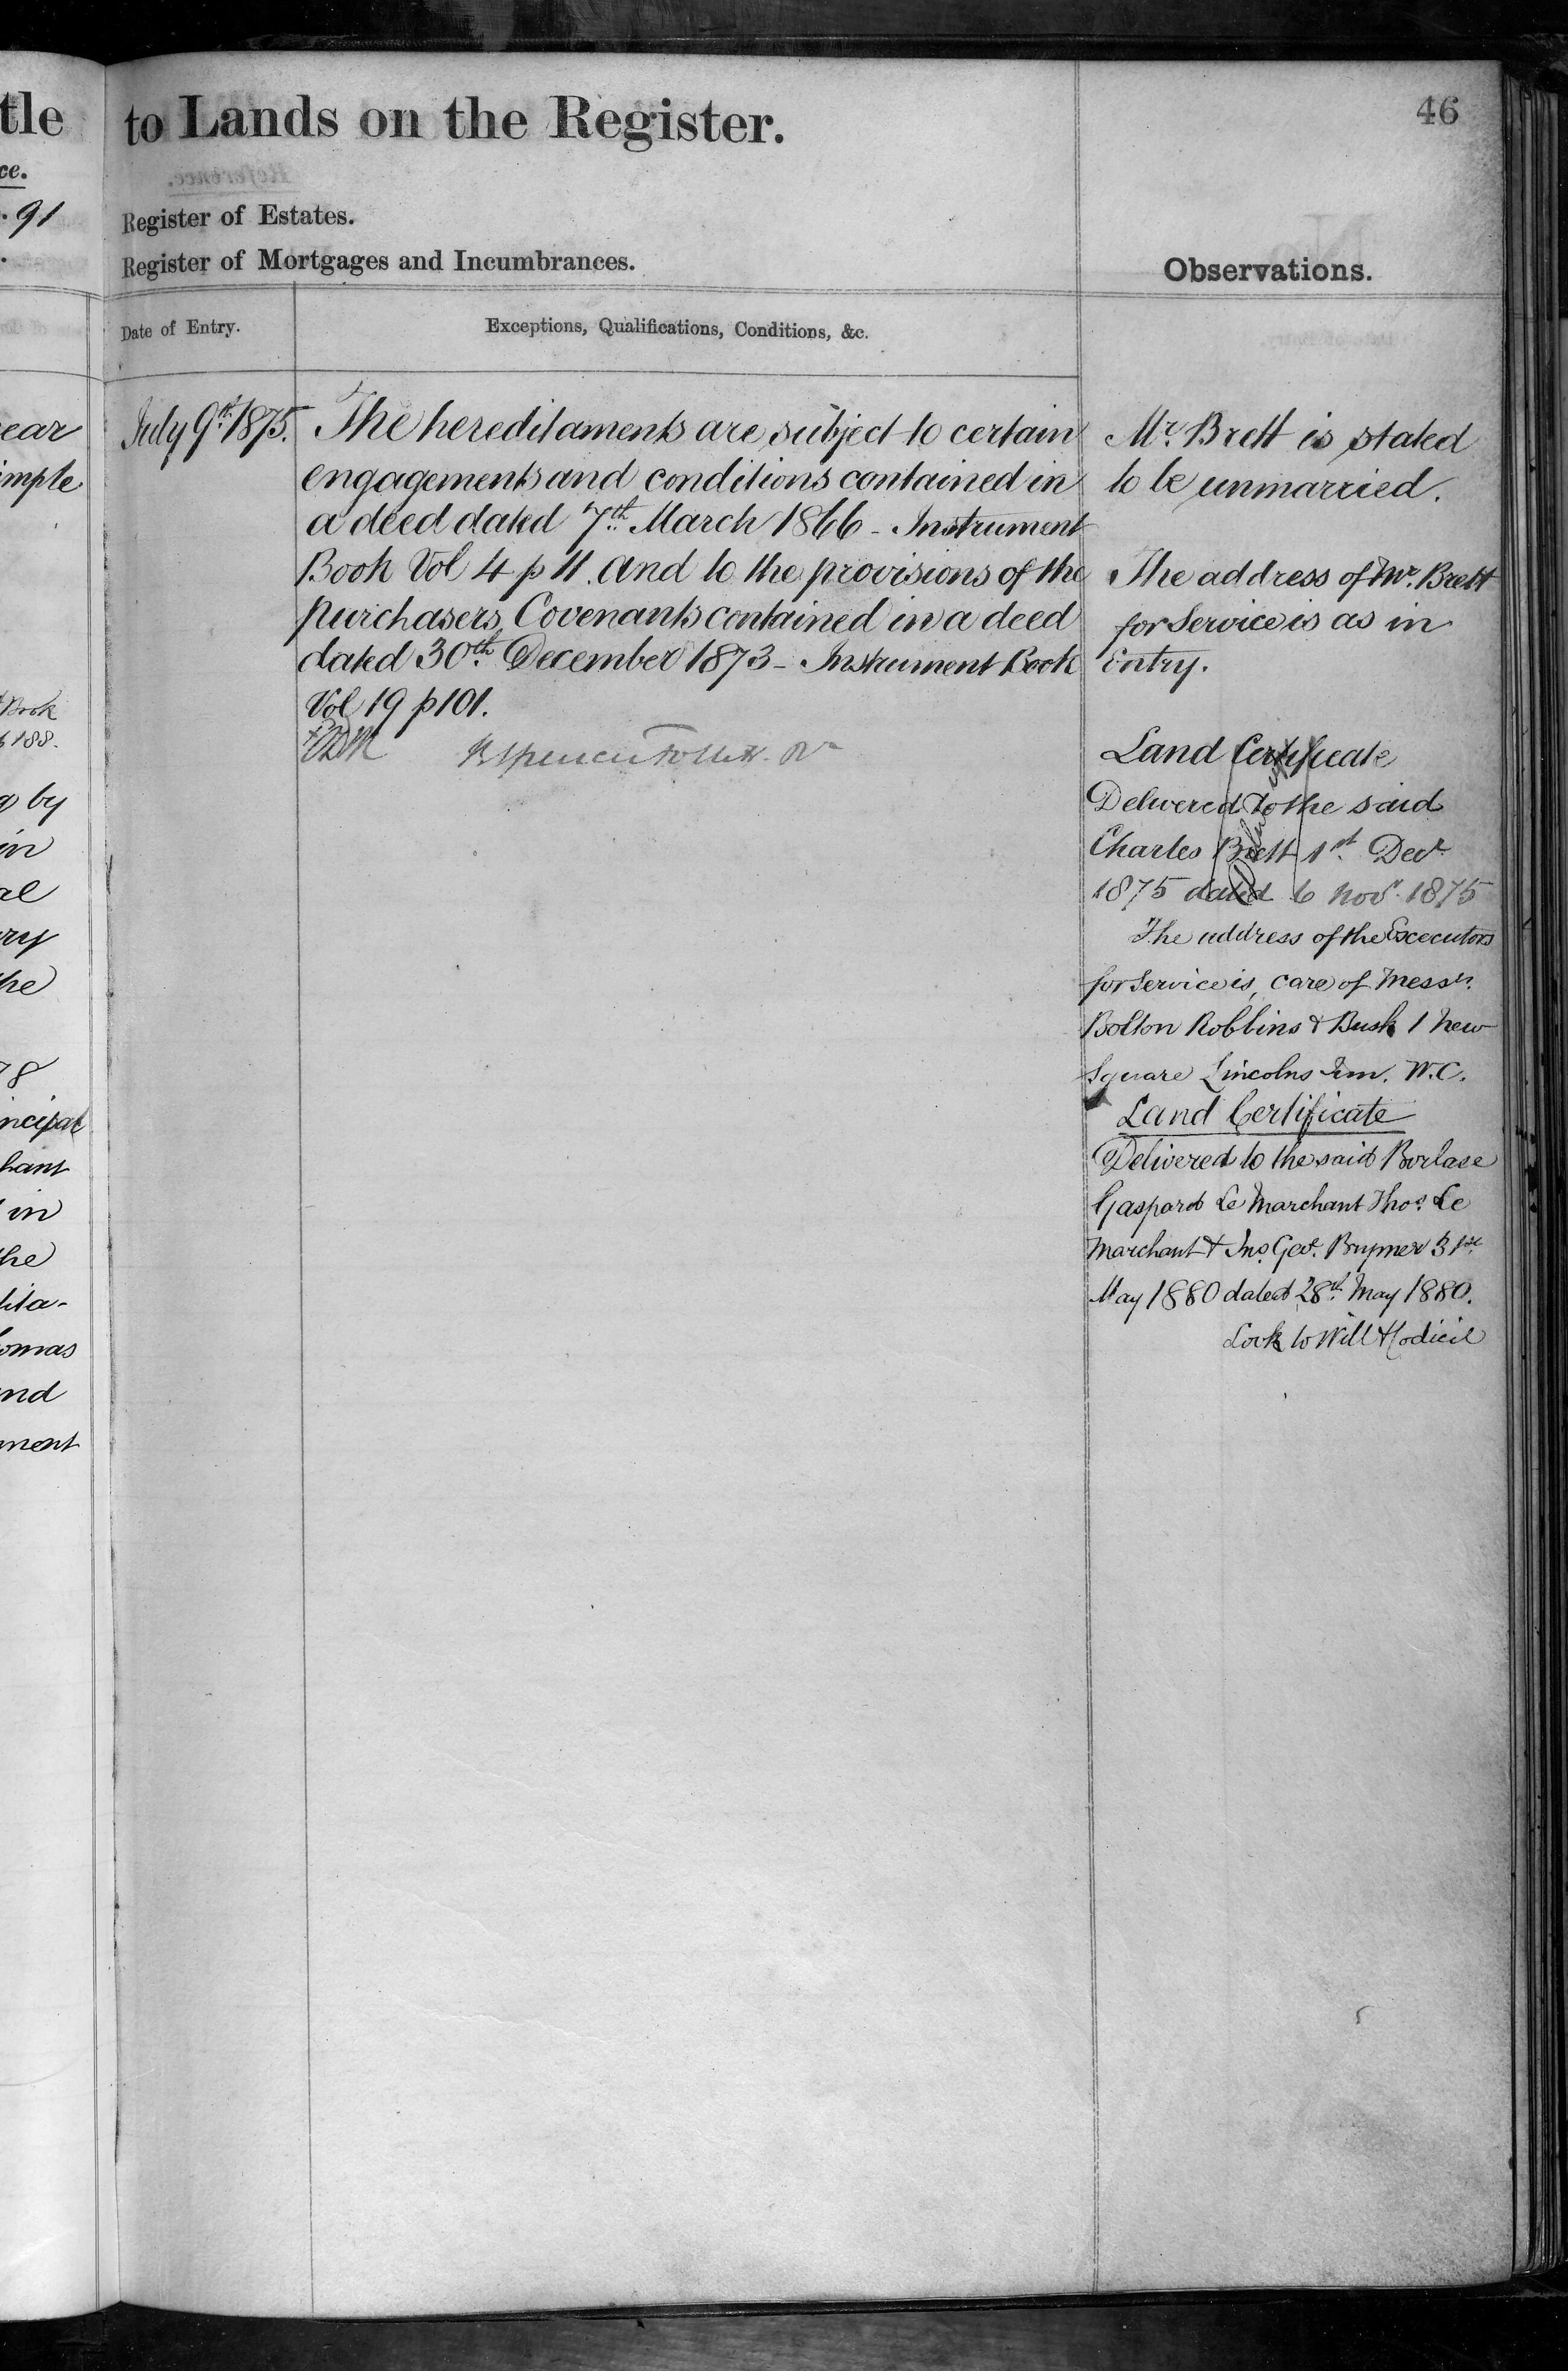 tle
ce.
. 91
ear
imple
Book
p 188.
by
in
al
ry
he
78
incipal
hant
in
he
dita-
omas
and
ment
to Lands on the Register.
46
Register of Estates.
Register of Mortgages and Incumbrances.
Observations.
Date of Entry.
Exceptions, Qualifications, Conditions, &c.
July 9th 1875.
The hereditaments are subject to certain
engagements and conditions contained in
a deed dated 7th March 1866 - Instrument
Book Vol 4 p 11. And to the provisions of the
purchasers Covenants contained in a deed
dated 30th December 1873 - Instrument Book
Vol 19 p 101.
Mr. Brett is stated
to be unmarried.
The address of Mr. Brett
for Service is as in
Entry.
Land Certificate
Delivered to the said
Charles Brett 1st Decr
1875 dated 6 Novr. 1875
The address of the Executors
for Service is, care of Messrs.
Bolton Robbins & Busk 1 New
Square Lincolns Inn. W.C.
Land Certificate
Delivered to the said Borlase
Gaspard Le Marchant Thos. Le
Marchant & Jno. Geo. Brymer 31st
May 1880 dated 28th May 1880.
Look to Will & Codicil